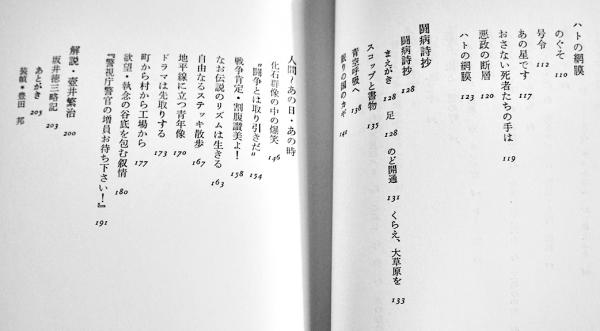 ハトの網膜
のぐそ 110
号令 112
あの星です 117
おさない死者たちの手は 119
悪政の断層 120
ハトの網膜 123
闘病詩抄
闘病詩抄 128
まえがき 128 足 128 のど開通 131 くらえ、大草原を 133
スコップと書物 135
青空呼吸へ 138
眠りの国のカギ 141
人間/あの日・あの時
化石群像の中の爆笑 146
“闘争とは取り引きだ” 154
戦争肯定・割腹讃美よ! 158
なお伝説のリズムは生きる 163
自由なるステッキ散歩 167
地平線に立つ青年像 170
ドラマは先取りする 173
町から村から工場から 177
欲望・執念の谷底を包む叙情 180
『警視庁警官の増員お待ち下さい!』 191
解説・壺井繁治 200
坂井徳三略記 203
あとがき 205
装幀・豊田 邦